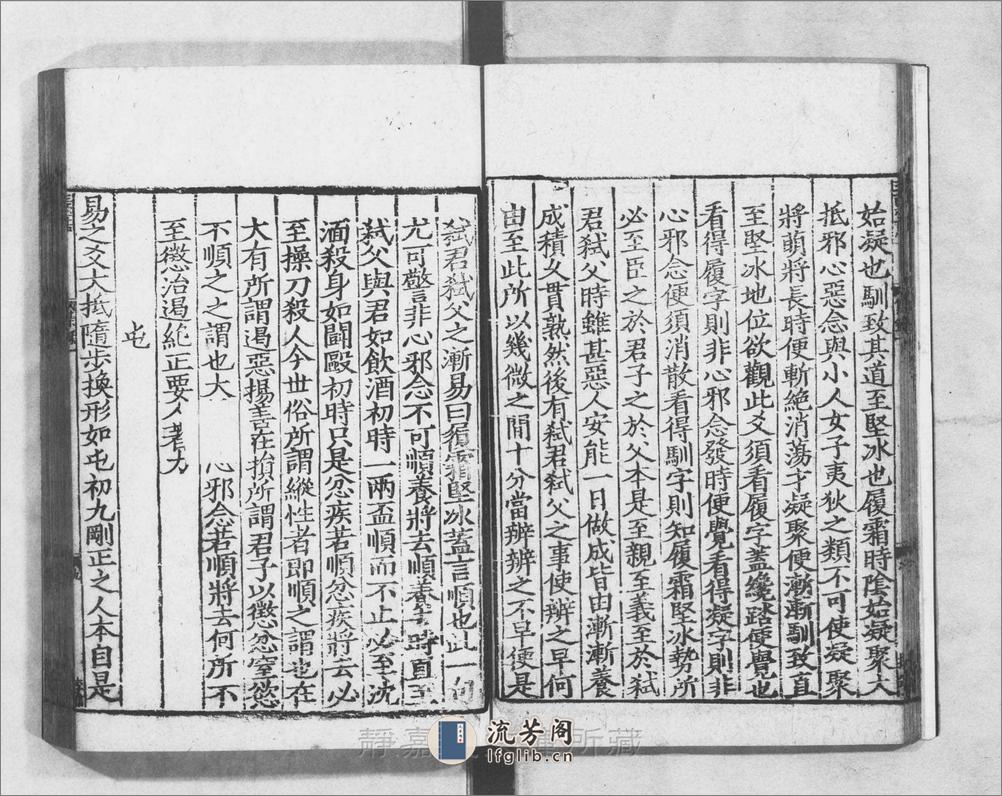 始凝也馴致其道至堅冰也履霜時陰始凝聚大
抵邪心惡念與小人女子夷狄之類不可使凝聚
將萌將長時便斬絶消蕩才凝聚便漸漸馴致直
至堅冰地位欲觀此爻須看履字蓋纔踏便覺也
看得履字則非心邪念發時便覺看得凝字則非
心邪念便須消散看得馴字則知履霜堅冰勢所
必至臣之於君子之於父本是至親至義至於弑
君弑父時雖甚惡人安能一日做成皆由漸漸養
成積久貫熟然後有弑君弑父之事使辨之早何
由至此所以幾微之間十分當辨辨之不早便是
弑君弑父之漸易曰履霜堅冰蓋言順也此一句
尤可警非心邪念不可順養將去順養去時直至
弑父與君如飲酒初時一兩盃順而不止必至沈
湎殺身如鬬毆初時只是忿疾若順忿疾將去必
至操刀殺人今世俗所謂縱性者即順之謂也在
大有所謂遏惡揚善在損所謂君子以懲忿窒慾
不順之之謂也大 心邪念若順將去何所不
至懲治遏絶正要人着力
屯
易之爻大抵隨步換形如屯初九剛正之人本自是
靜嘉 所藏
流芳阁
lfglib.cn